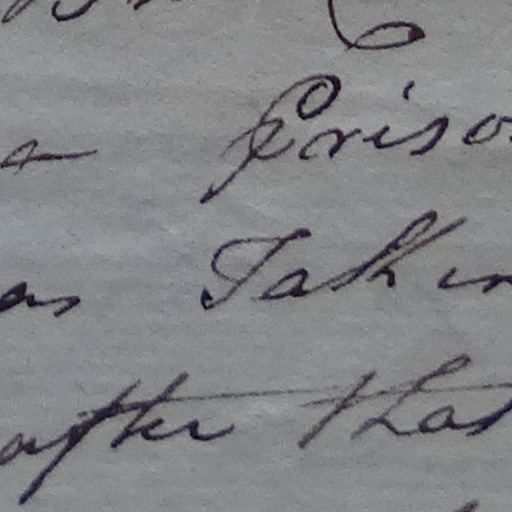 a Priso
as Taken
after that